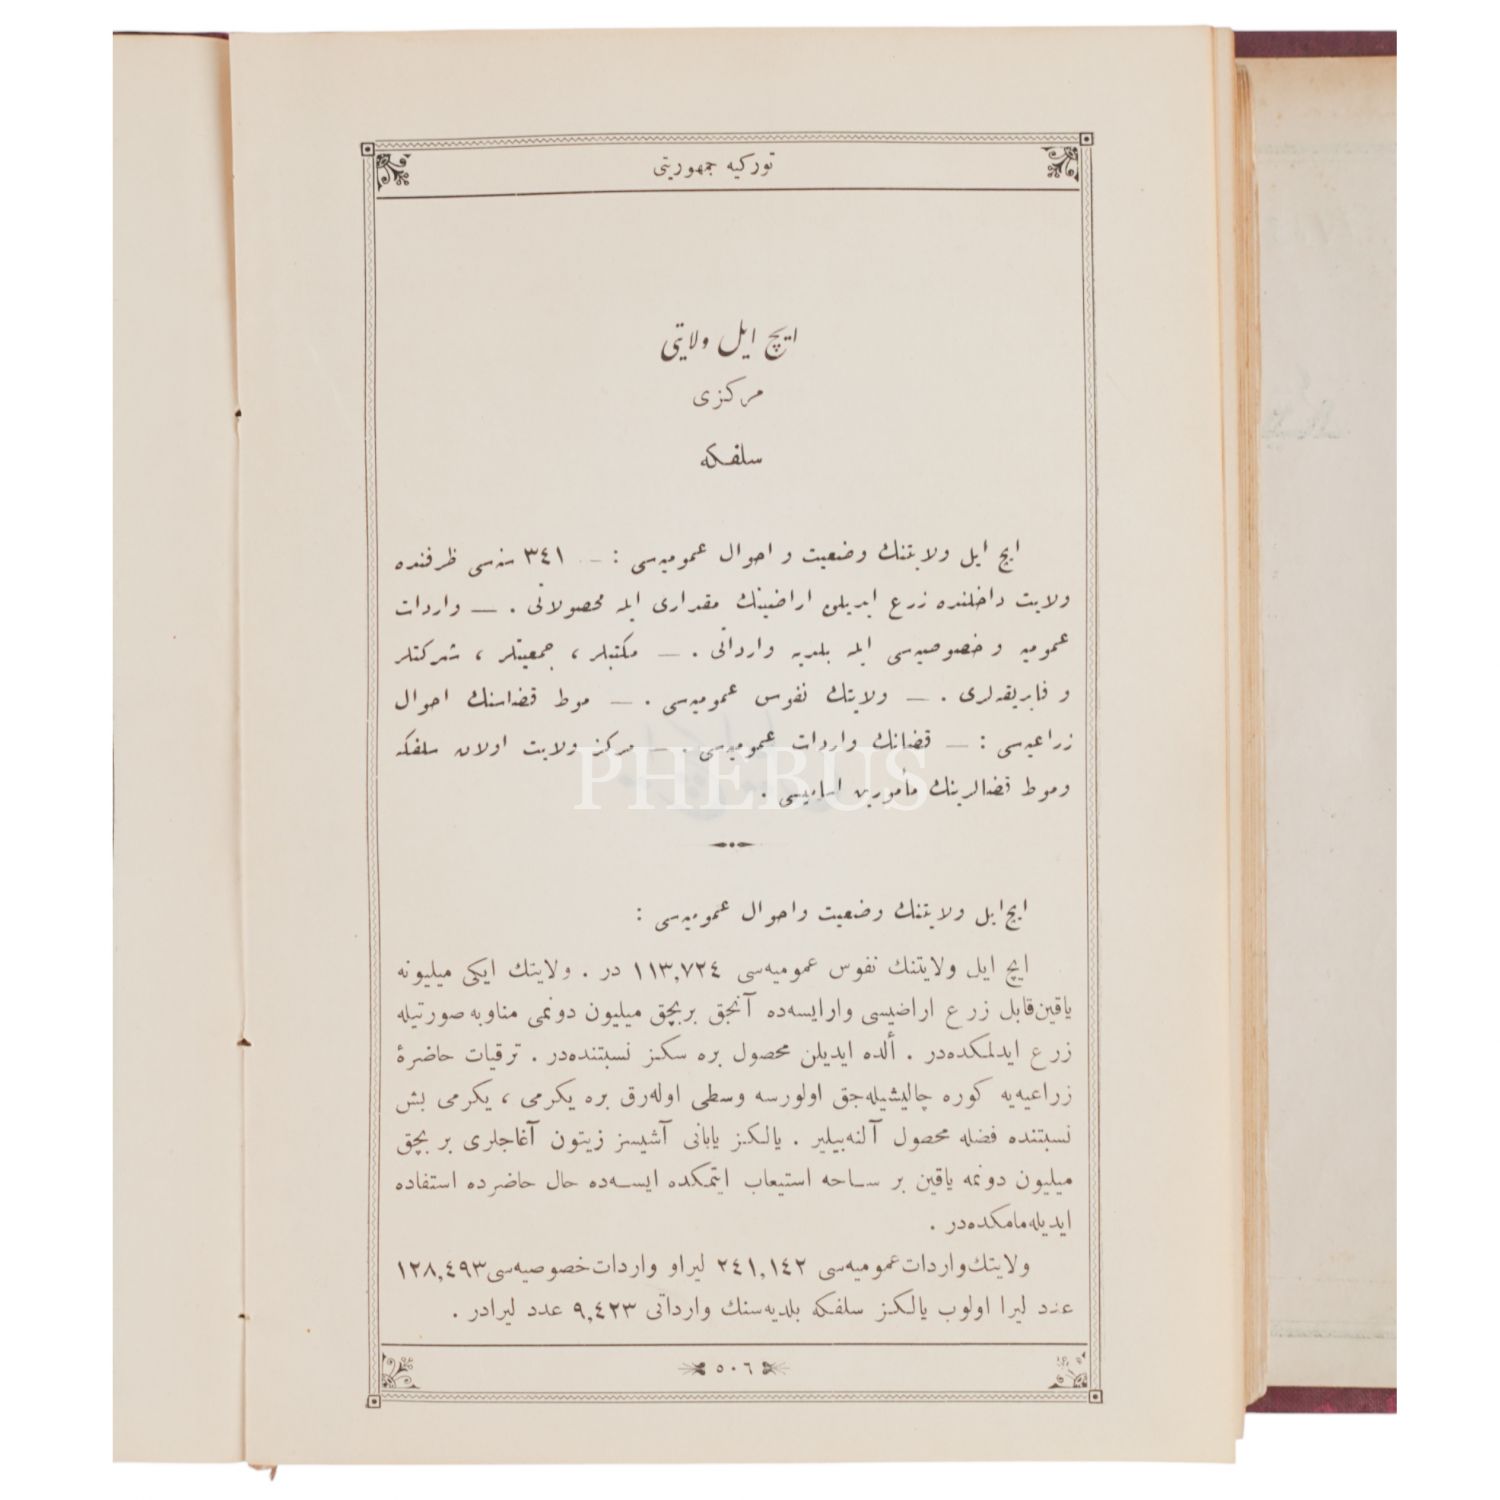 توركیه جمهوریتی
ایچ ایل ولایتی
مركزی
سلفكه
ایچ ایل ولایتنك وضعیت و احوال عمومیه‌سی : — ٣٤١ سنه‌سی ظرفنده
ولایت داخلنده زرع ایدیلن اراضینك مقداری ایله محصولاتی . — واردات
عمومیه و خصوصیه‌سی ایله بلدیه وارداتی . — مكتبلر ، جمعیتلر ، شركتلر
و فابریقه‌لری . — ولایتك نفوس عمومیه‌سی . — موط قضاسنك احوال
زراعیه‌سی : — قضانك واردات عمومیه‌سی . — مركز ولایت اولان سلفكه
وموط قضالرینك مأمورین اسامیسی .
PHEBUS
ایچ ایل ولایتنك وضعیت واحوال عمومیه‌سی :
ایچ ایل ولایتنك نفوس عمومیه‌سی ١١٣,٧٢٤ در . ولایتك ایكی میلیونه
یاقین قابل زرع اراضیسی وارایسه‌ده آنجق بربچق میلیون دونمی مناوبه صورتیله
زرع ایدلمكده‌در . ألده ایدیلن محصول بره سكز نسبتنده‌در . ترقیات حاضرۀ
زراعیه‌یه كوره چالیشیله‌جق اولورسه وسطی اوله‌رق بره یكرمی ، یكرمی بش
نسبتنده فضله محصول آلنه‌بیلیر . یالكز یابانی آشیسز زیتون آغاجلری بر بچق
میلیون دونمه یاقین بر ساحه استیعاب ایتمكده ایسه‌ده حال حاضرده استفاده
ایدیله‌مامكده‌در .
ولایتك واردات عمومیه‌سی ٢٤١,١٤٢ لیراو واردات خصوصیه‌سی ١٢٨,٤٩٣
عدد لیرا اولوب یالكز سلفكه بلدیه‌سنك وارداتی ٩,٤٢٣ عدد لیرادر .
٥٠٦